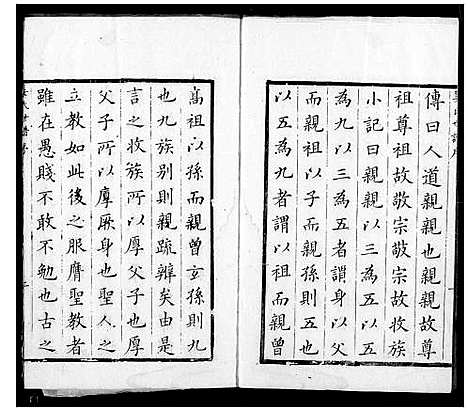 傳曰人道親親也親親故尊
祖尊祖故敬宗敬宗故收族
小記曰親親以三為五
為九以三為五者謂身以父
而親祖以子而親孫則五也
以五為九者謂以祖而親曾
高祖以孫而親曾玄孫則九
也九族別則親疏辨矣由是
言之收族所以厚父子也厚
父子所以厚厥身也聖人
立教如此後之服膺聖教者
雖在愚賤不敢不勉也古之